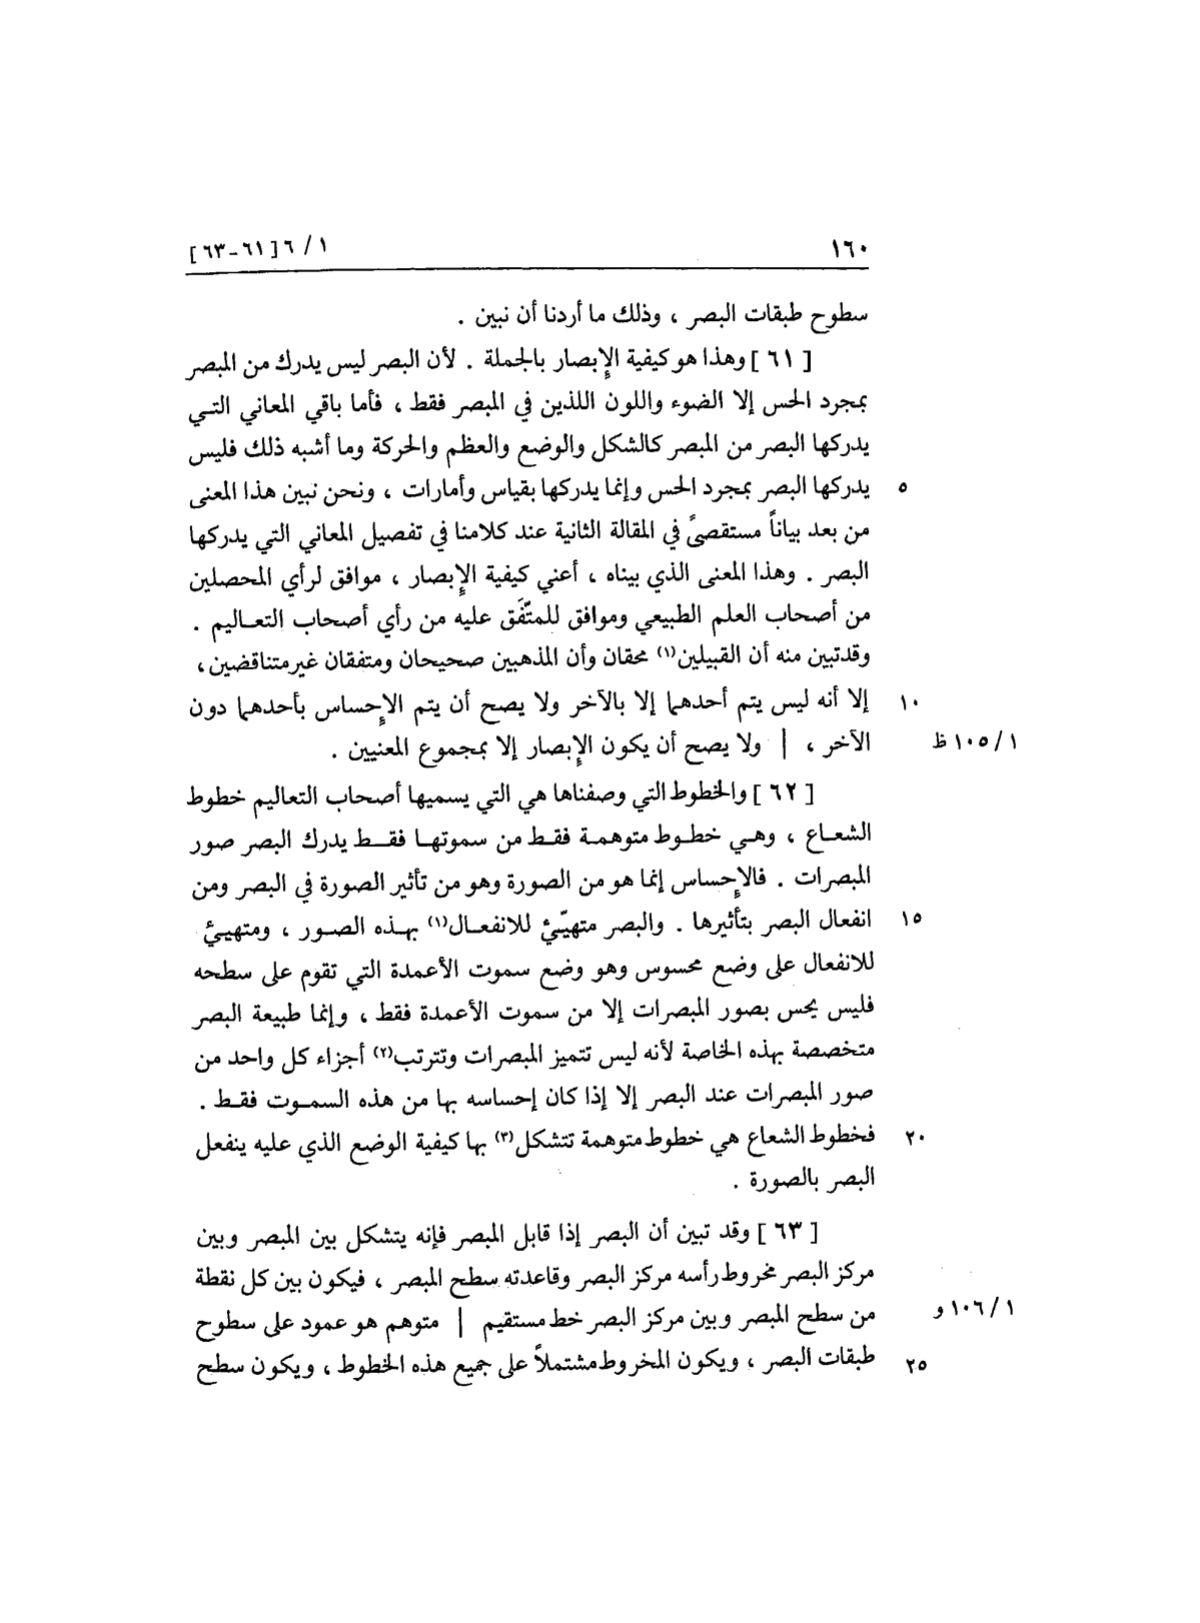 ١٦٠
١ / ٦ [٦١-٦٣]
سطوح طبقات البصر ، وذلك ما أردنا أن نبين .
[ ٦١ ] وهذا هو كيفية الإبصار بالجملة . لأن البصر ليس يدرك من المبصر
بمجرد الحس إلا الضوء واللون اللذين في المبصر فقط ، فأما باقي المعاني التي
يدركها البصر من المبصر كالشكل والوضع والعظم والحركة وما أشبه ذلك فليس
٥ يدركها البصر بمجرد الحس وإنما يدركها بقياس وأمارات ، ونحن نبين هذا المعنى
من بعد بياناً مستقصىً في المقالة الثانية عند كلامنا في تفصيل المعاني التي يدركها
البصر . وهذا المعنى الذي بيناه ، أعني كيفية الإبصار ، موافق لرأي المحصلين
من أصحاب العلم الطبيعي وموافق للمتَّفَق عليه من رأي أصحاب التعاليم .
وقد تبين منه أن القبيلين(١) محقان وأن المذهبين صحيحان ومتفقان غير متناقضين ،
١٠ إلا أنه ليس يتم أحدهما إلا بالآخر ولا يصح أن يتم الإحساس بأحدهما دون
١ / ١٠٥ ظ الآخر ، | ولا يصح أن يكون الإبصار إلا بمجموع المعنيين .
[ ٦٢ ] والخطوط التي وصفناها هي التي يسميها أصحاب التعاليم خطوط
الشعاع ، وهي خطوط متوهمة فقط من سموتها فقط يدرك البصر صور
المبصرات . فالإحساس إنما هو من الصورة وهو من تأثير الصورة في البصر ومن
١٥ انفعال البصر بتأثيرها . والبصر متهيّئ للانفعال(١) بهذه الصور ، ومتهيئ
للانفعال على وضع محسوس وهو وضع سموت الأعمدة التي تقوم على سطحه
فليس يحس بصور المبصرات إلا من سموت الأعمدة فقط ، وإنما طبيعة البصر
متخصصة بهذه الخاصة لأنه ليس تتميز المبصرات وتترتب(٢) أجزاء كل واحد من
صور المبصرات عند البصر إلا إذا كان إحساسه بها من هذه السموت فقط .
٢٠ فخطوط الشعاع هي خطوط متوهمة تتشكل(٣) بها كيفية الوضع الذي عليه ينفعل
البصر بالصورة .
[ ٦٣ ] وقد تبين أن البصر إذا قابل المبصر فإنه يتشكل بين المبصر وبين
مركز البصر مخروط رأسه مركز البصر وقاعدته سطح المبصر ، فيكون بين كل نقطة
١ / ١٠٦ و من سطح المبصر وبين مركز البصر خط مستقيم | متوهم هو عمود على سطوح
٢٥ طبقات البصر ، ويكون المخروط مشتملاً على جميع هذه الخطوط ، ويكون سطح